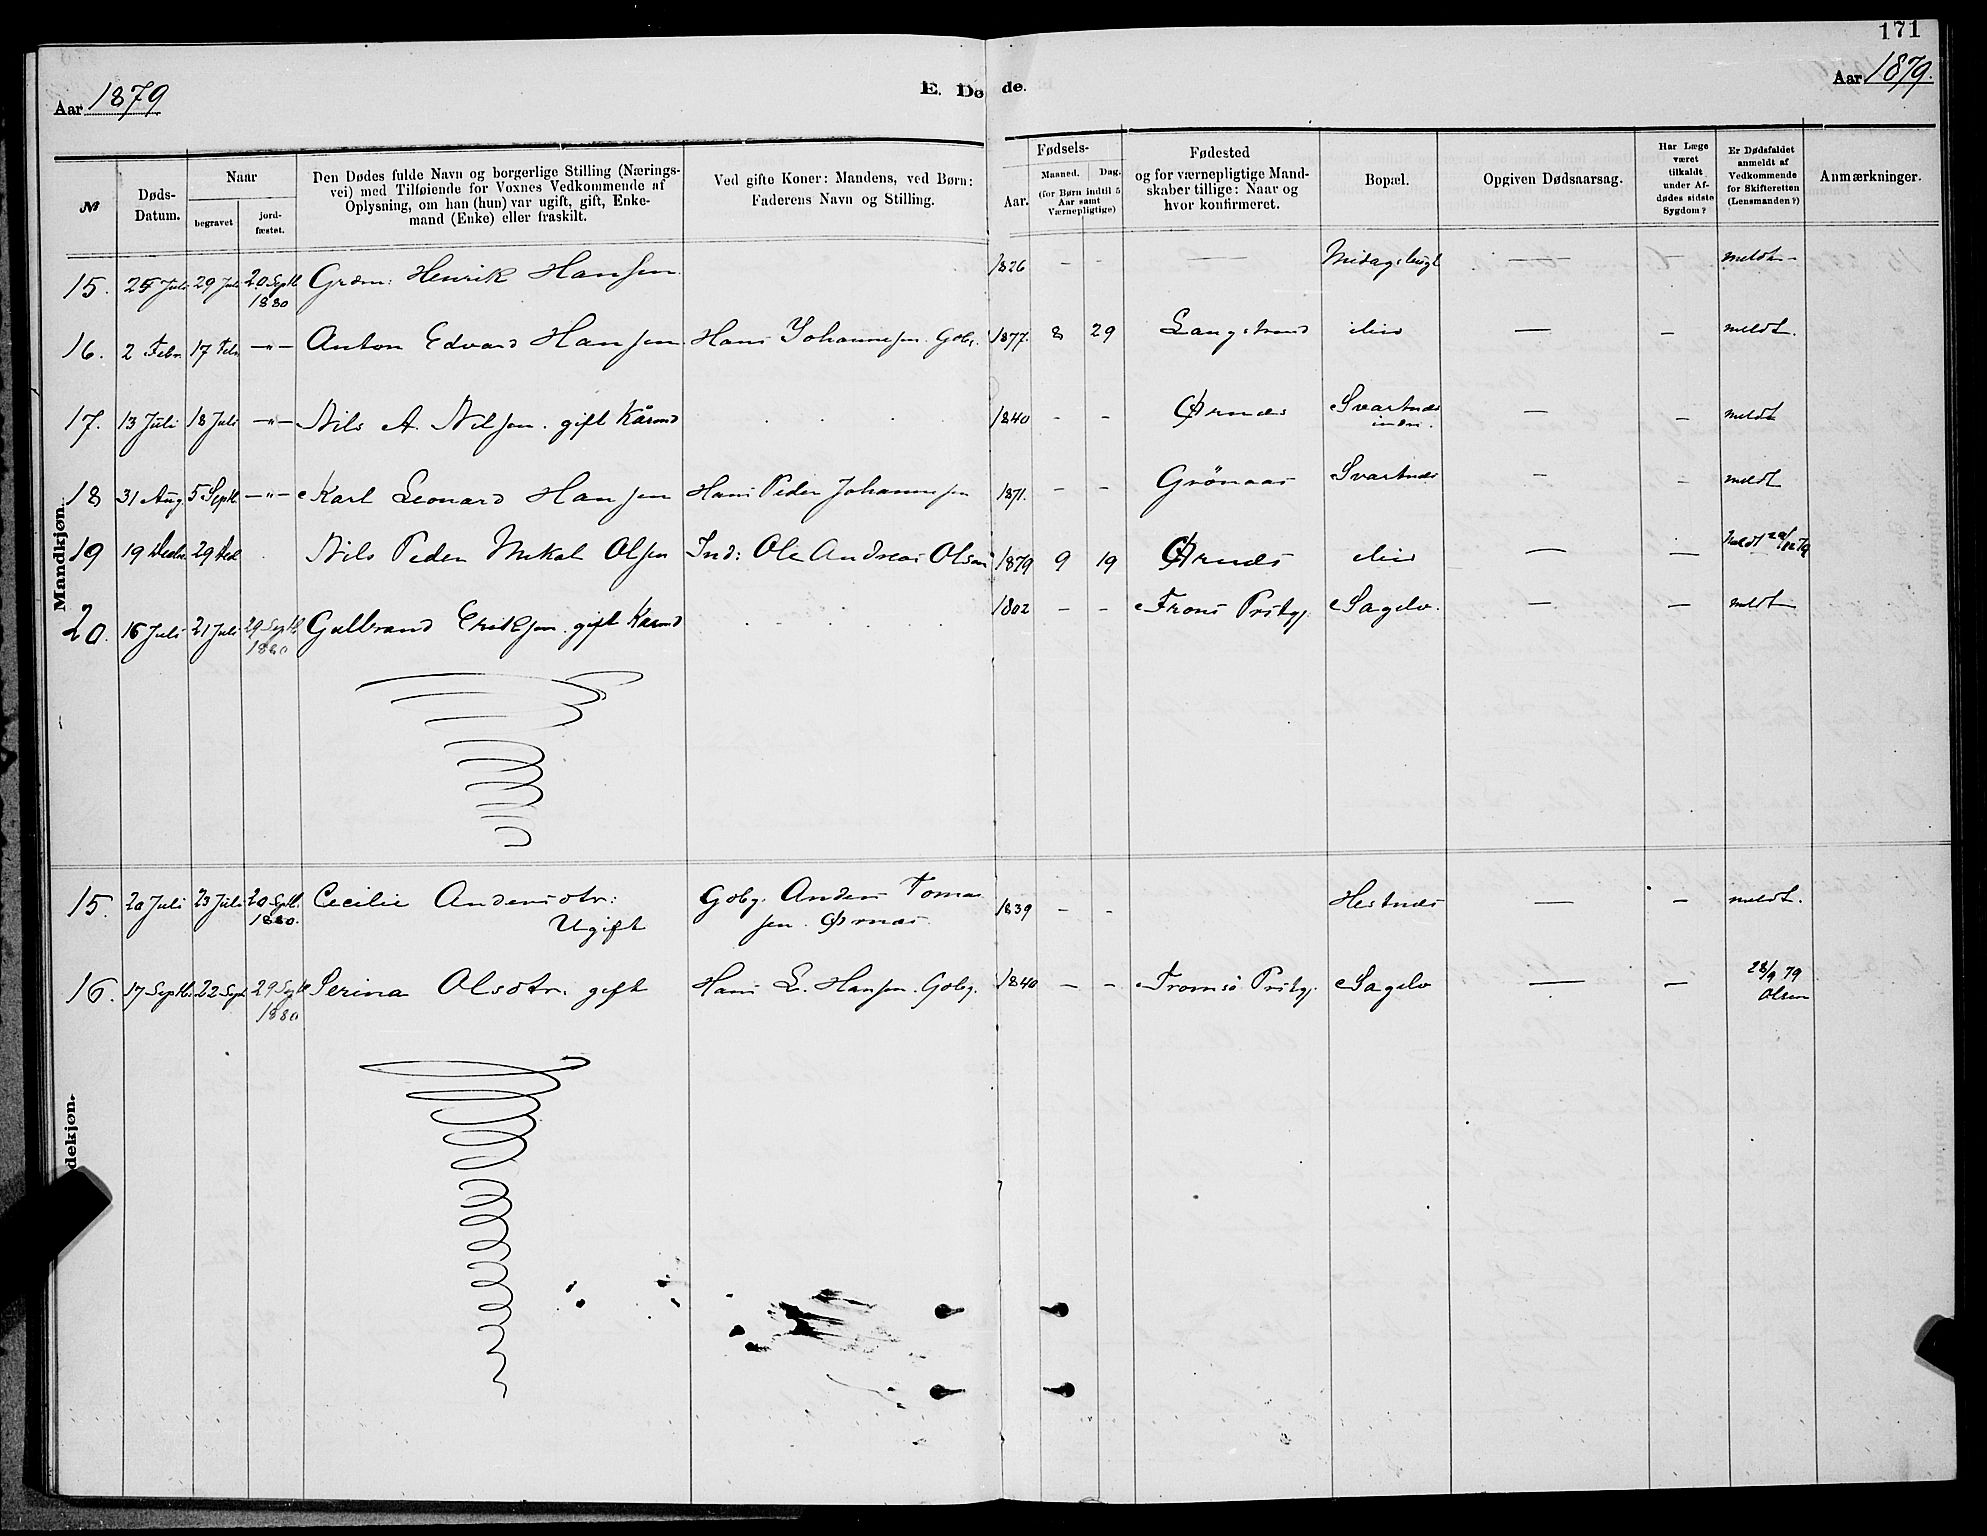 171
Aar 1879
E. Døde.
Aar 1879.
№
Døds-Datum.
Naar
begravet
jord-fæstet.
Den Dødes fulde Navn og borgerlige Stilling (Nærings-
vei) med Tilføiende for Voxnes Vedkommende af
Oplysning, om han (hun) var ugift, gift, Enke-
mand (Enke) eller fraskilt.
Ved gifte Koner: Mandens, ved Børn:
Faderens Navn og Stilling.
Fødsels-
Aar.
Maaned.
Dag.
(for Børn indtil 5
Aar samt
Værnepligtige)
Fødested
og for værnepligtige Mand-
skaber tillige: Naar og
hvor konfirmeret.
Bopæl.
Opgiven Dødsaarsag.
Har Læge
været
tilkaldt
under Af-
dødes sidste
Sygdom?
Er Dødsfaldet
anmeldt af
Vedkommende
for Skifteretten
(Lensmanden?)
Anmærkninger.
Mandkjøn.
15. 25 Juli 29 Juli 20 Septb 1880 Grdm: Henrik Hansen 1826 - - — Midagsbugt — meldt -
16. 2 Febr. 17 Febr —"— Anton Edvard Hansen Hans Johannesen. Gbr. 1877. 8 29 Langstrand — — meldt.
17. 13 Juli 18 Juli —"— Nils A. Nilsen. gift Kårmd 1840 - - Ørnæs Svartnæs indre. — — meldt
18 31 Aug. 5 Septb —"— Karl Leonard Hansen Hans Peder Johannesen 1871. - - Grönaas Svartnæs — — meldt
19 19 Decbr 29 Dec Nils Peder Mikal Olsen Ind: Ole Andreas Olsen 1879 9 19 Ørnæs — — Meldt 29/12 79
20. 16 Juli 21 Juli 29 Septb. 1880 Gulbrand Eriksen. gift Kaarmd 1802 - - Frons Prstgj. Sagelv. — — meldt
dekjøn.
15. 20 Juli 23 Juli 20 Septb. 1880. Cecilie Andersdtr: Ugift Gbg. Anders Tomasen. Ørnæs. 1839 - - Hestnæs — — meldt.
16. 17 Septb. 22 Sept 29 Septb 1880 Serina Olsdtr. gift Hans L. Hansen. Gbg. 1840 - - Tromsö Prstgj. Sagelv — — 28/9 79 Olsen